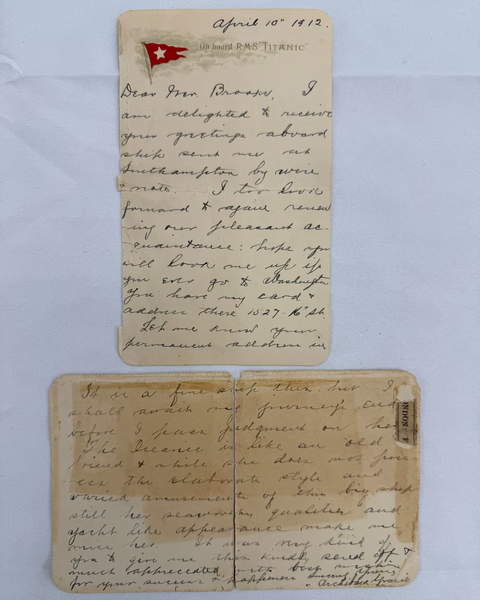 April 10th 1912.
On board R.M.S. TITANIC
Dear Mr. I
am delighted to receive
your greetings aboard
ship sent me at
Southampton by wire
& note. I too look
forward to again renew
ing our pleasant ac-
quaintance: hope you
will look me up if
you ever go to Washington
You have my card &
address there 1527-16 St
Let me know your
permanent address in
It is a fine ship this but I
shall await my journey's end
before I pass judgment on her
The Oceanic is like an old
friend & while she does not poss
ess the elaborate style and
varied amusements of this big ship
still her seaworthy qualities and
yacht like appearance make me
miss her It was very kind of
you to give me this kindly send off &
much appreciated with best wishes
for your success & happiness
Archibald Gracie